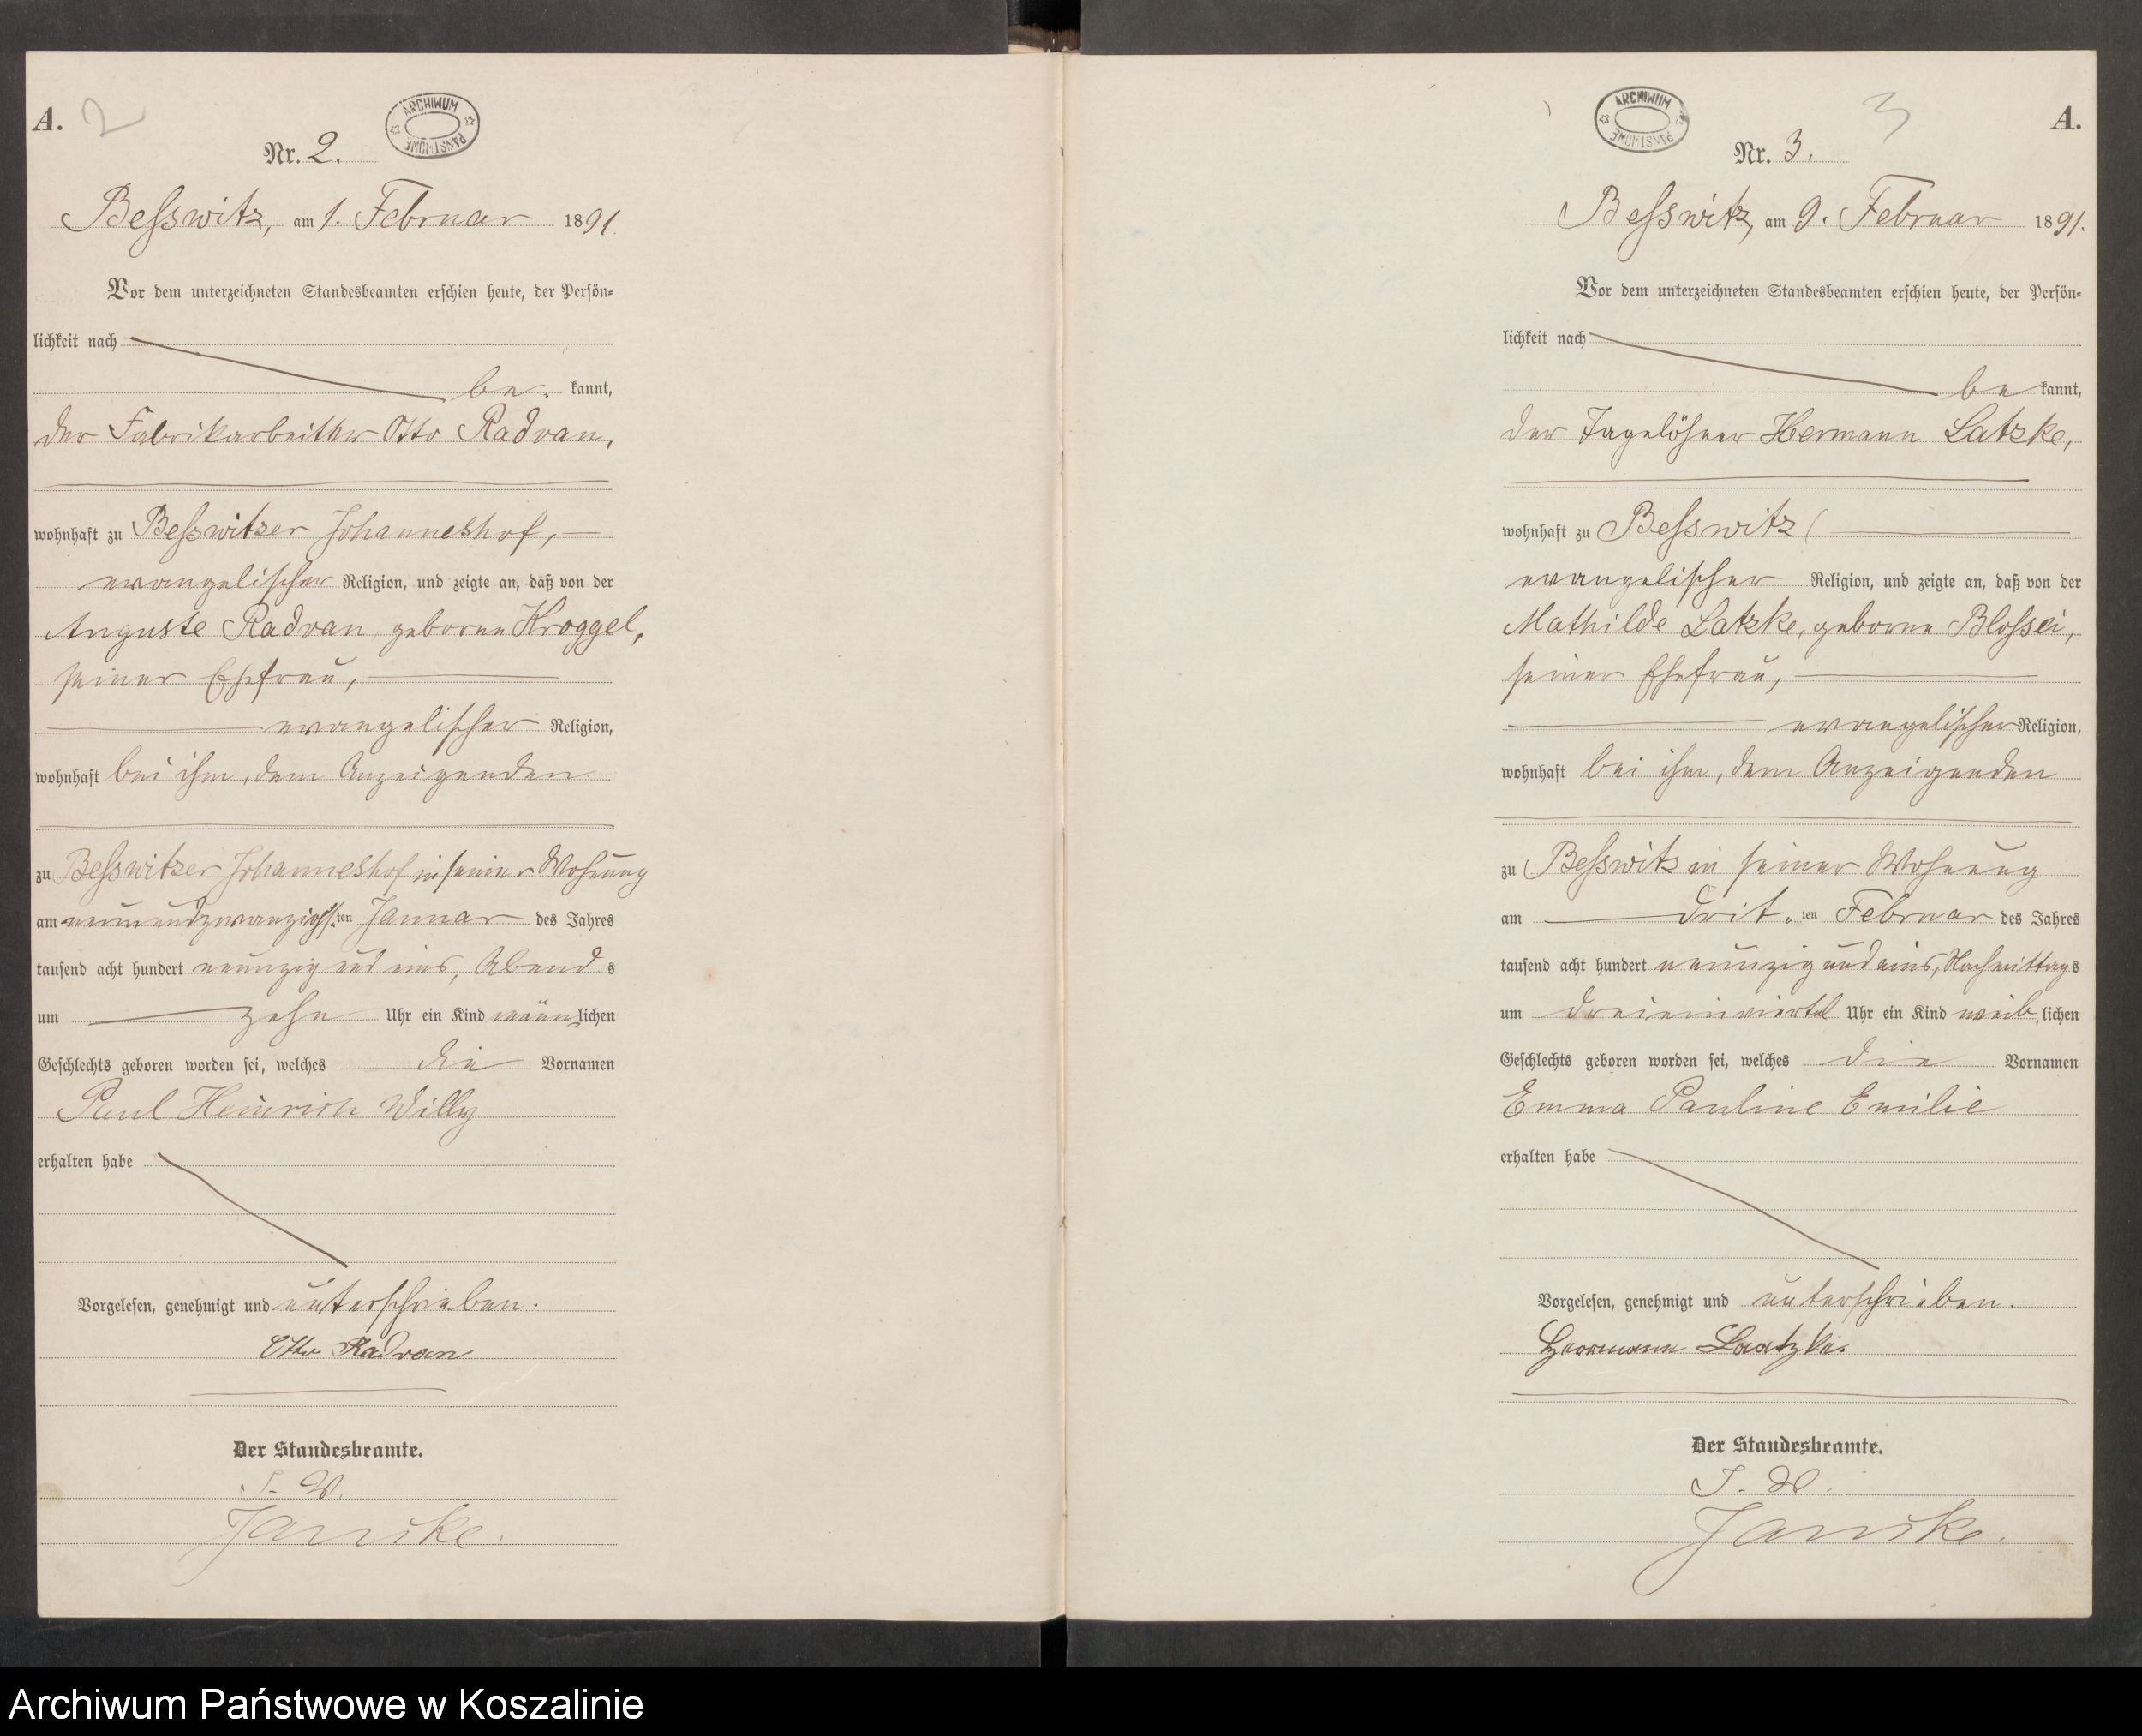 A. 2
ARCHIWUM PAŃSTWOWE
Nr. 2.
Beßswitz, am 1. Februar 1891
Vor dem unterzeichneten Standesbeamten erschien heute, der Persön-
lichkeit nach
be. kannt,
der Fabrikarbeither Otto Radvan,
wohnhaft zu Beßswitzer Johanneshof,
evangelischer Religion, und zeigte an, daß von der
Auguste Radvan, geborne Kroggel,
seiner Ehefrau,
evangelischer Religion,
wohnhaft bei ihm, dem Anzeigenden
zu Beßswitzer Johanneshof in seiner Wohnung
am neunundzwanzigsten Januar des Jahres
tausend acht hundert neunzig und eins, Abends
um zehn Uhr ein Kind männlichen
Geschlechts geboren worden sei, welches die Vornamen
Paul Heinrich Willy
erhalten habe
Vorgelesen, genehmigt und unterschrieben.
Otto Radvan
Der Standesbeamte.
J. V.
Janike.
ARCHIWUM PAŃSTWOWE
3 A.
Nr. 3.
Beßswitz, am 9. Februar 1891.
Vor dem unterzeichneten Standesbeamten erschien heute, der Persön-
lichkeit nach
be kannt,
der Tagelöhner Hermann Latzke,
wohnhaft zu Beßswitz
evangelischer Religion, und zeigte an, daß von der
Mathilde Latzke, geborne Bloßei,
seiner Ehefrau,
evangelischer Religion,
wohnhaft bei ihm, dem Anzeigenden
zu Beßswitz in seiner Wohnung
am drit. ten Februar des Jahres
tausend acht hundert neunzig und eins, Nachmittags
um dreieinviertel Uhr ein Kind weiblichen
Geschlechts geboren worden sei, welches die Vornamen
Emma Pauline Emilie
erhalten habe
Vorgelesen, genehmigt und unterschrieben.
Herrmann Laatzke.
Der Standesbeamte.
J. V.
Janike.
Archiwum Państwowe w Koszalinie